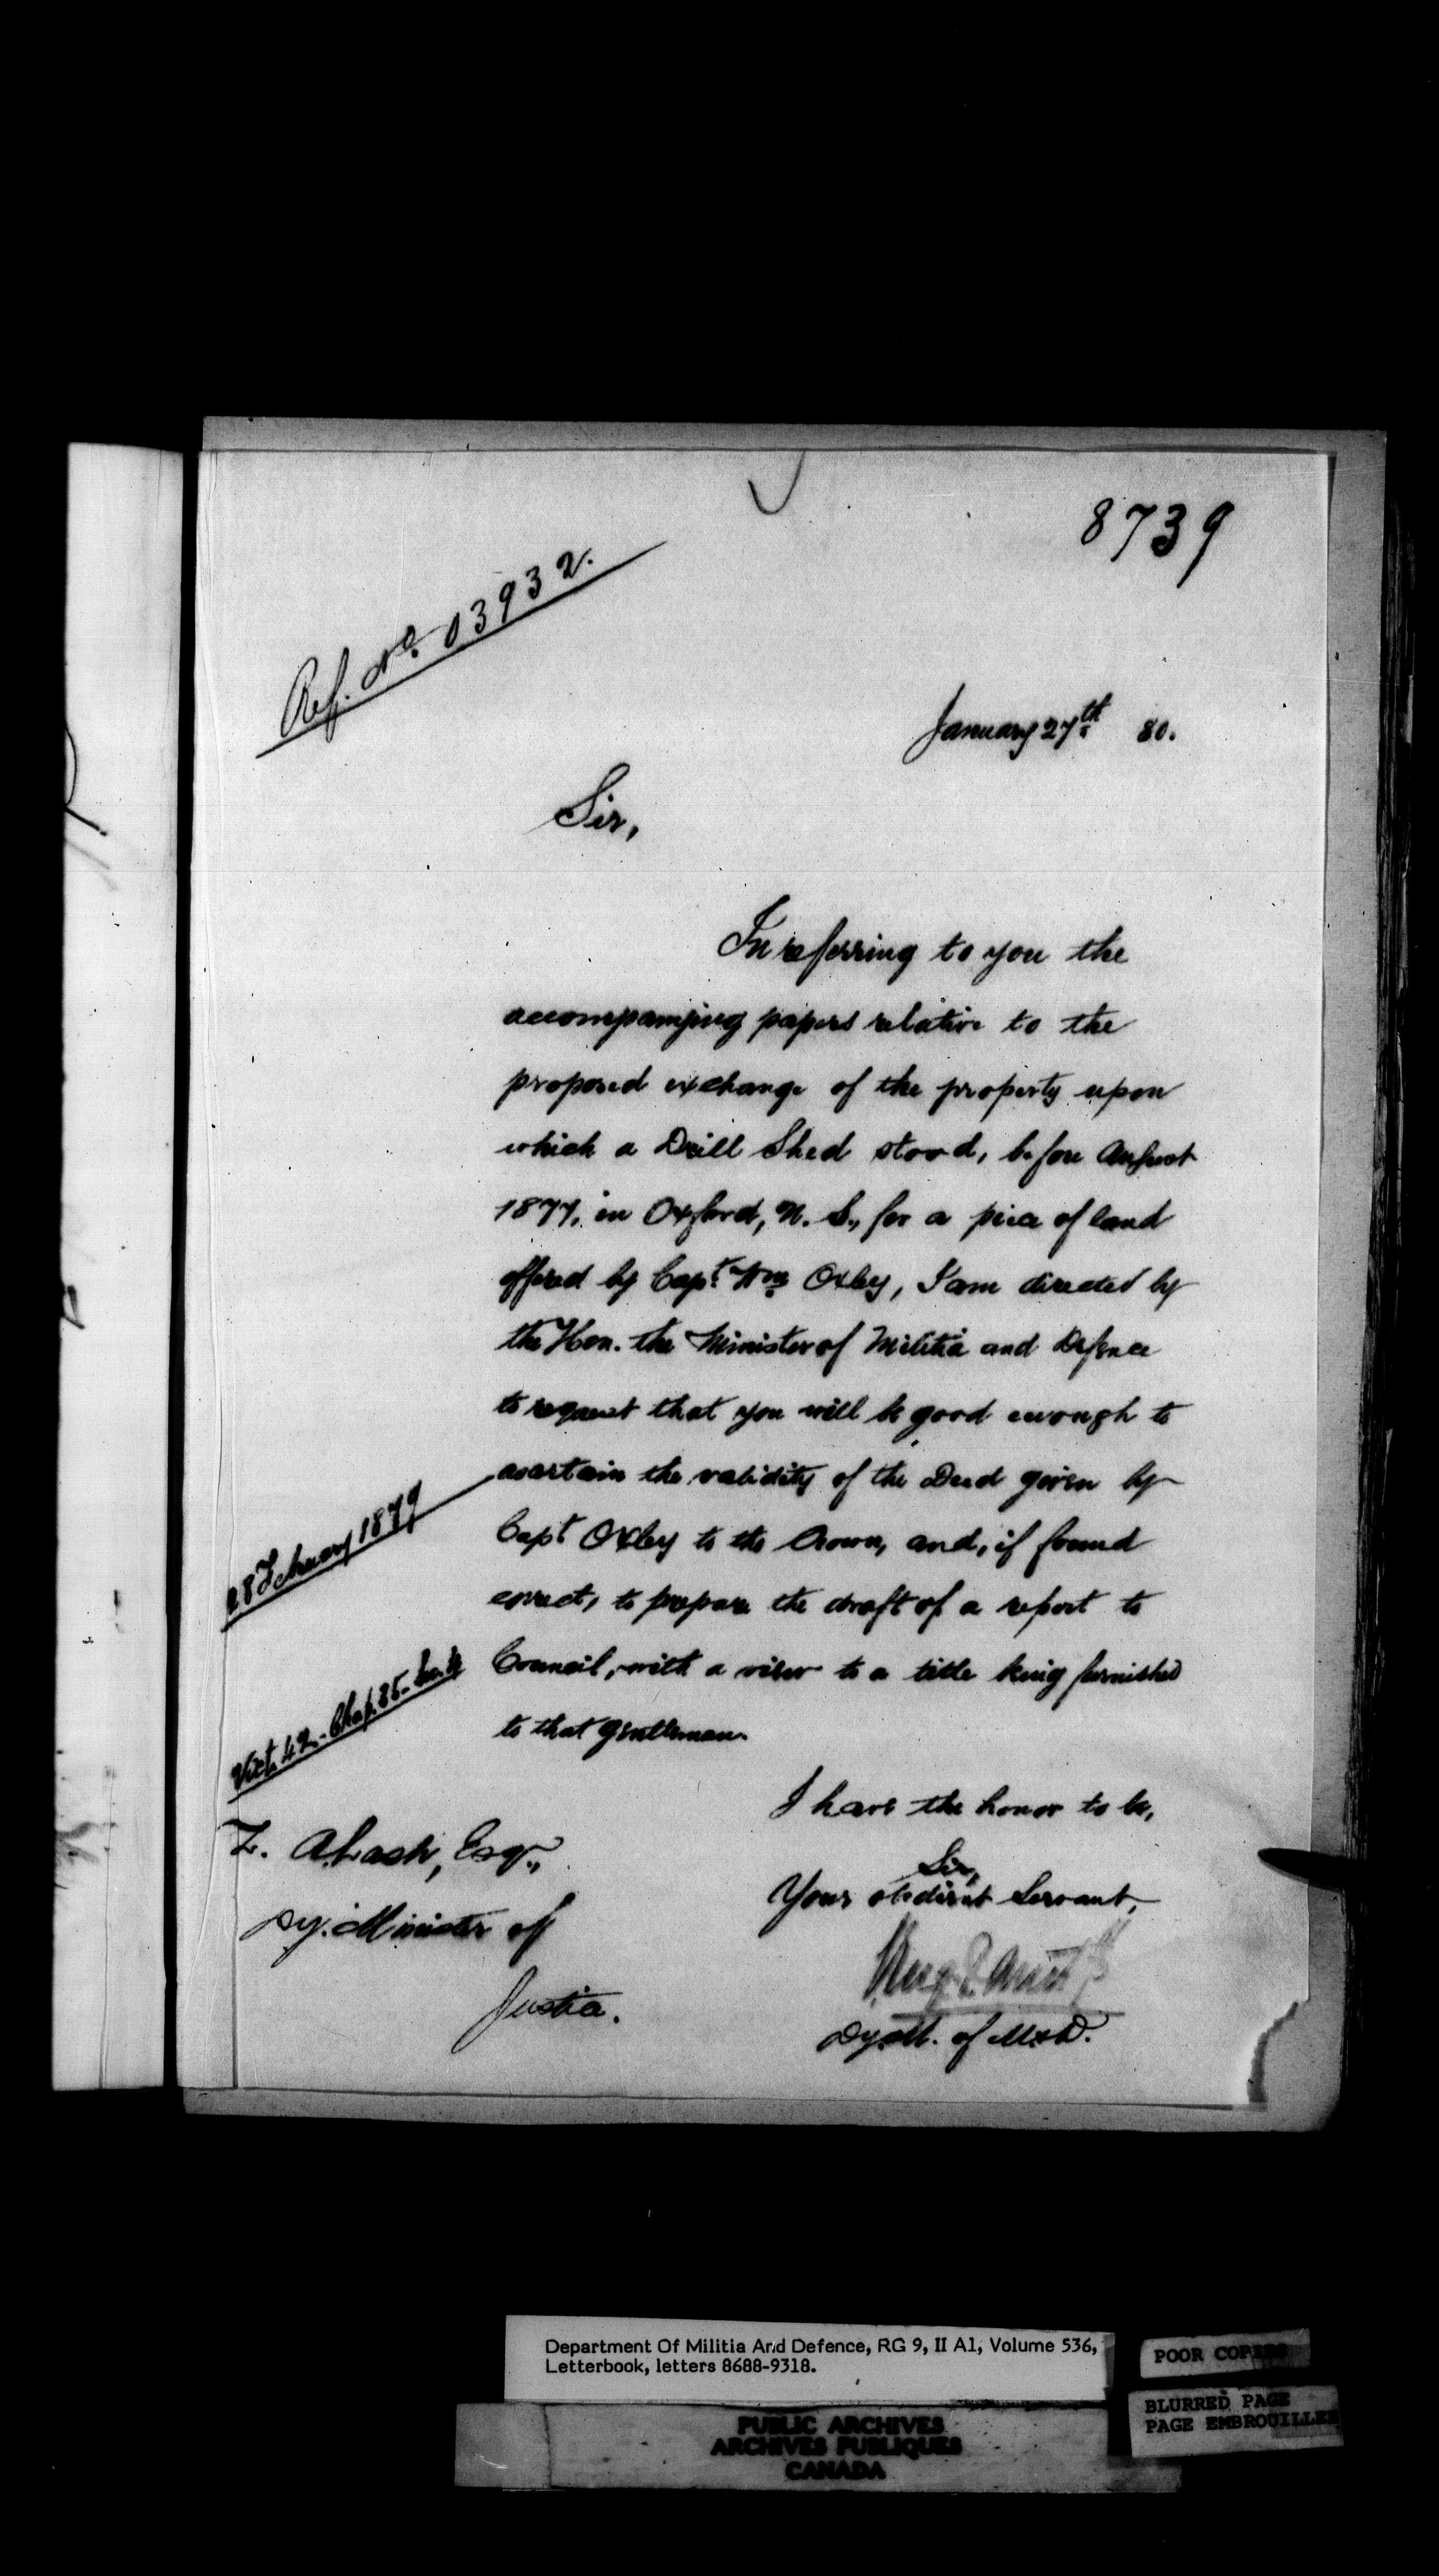 8739
Ref. No. 03932.
January 27th 80.
Sir,
In referring to you the
accompanying papers relative to the
proposed exchange of the property upon
which a Drill Shed stood, before August
1877, in Oxford, N. S., for a piece of land
offered by Capt. Wm Oxley, I am directed by
the Hon. the Minister of Militia and Defence
to request that you will be good enough to
ascertain the validity of the Deed given by
28 February 1879
Capt Oxley to the Crown, and, if found
correct, to prepare the draft of a report to
Council, with a view to a title being furnished
Vict. 42 - Chap. 35 -
to that gentleman.
I have the honor to be,
Sir,
Your obedient Servant,
Dy. M. of M & D.
Z. A. Lash, Esqr.,
Dy. Minister of
Justice.
Department Of Militia And Defence, RG 9, II A1, Volume 536,
Letterbook, letters 8688-9318.
POOR COPIES
BLURRED PAGE
PAGE EMBROUILLEE
PUBLIC ARCHIVES
ARCHIVES PUBLIQUES
CANADA